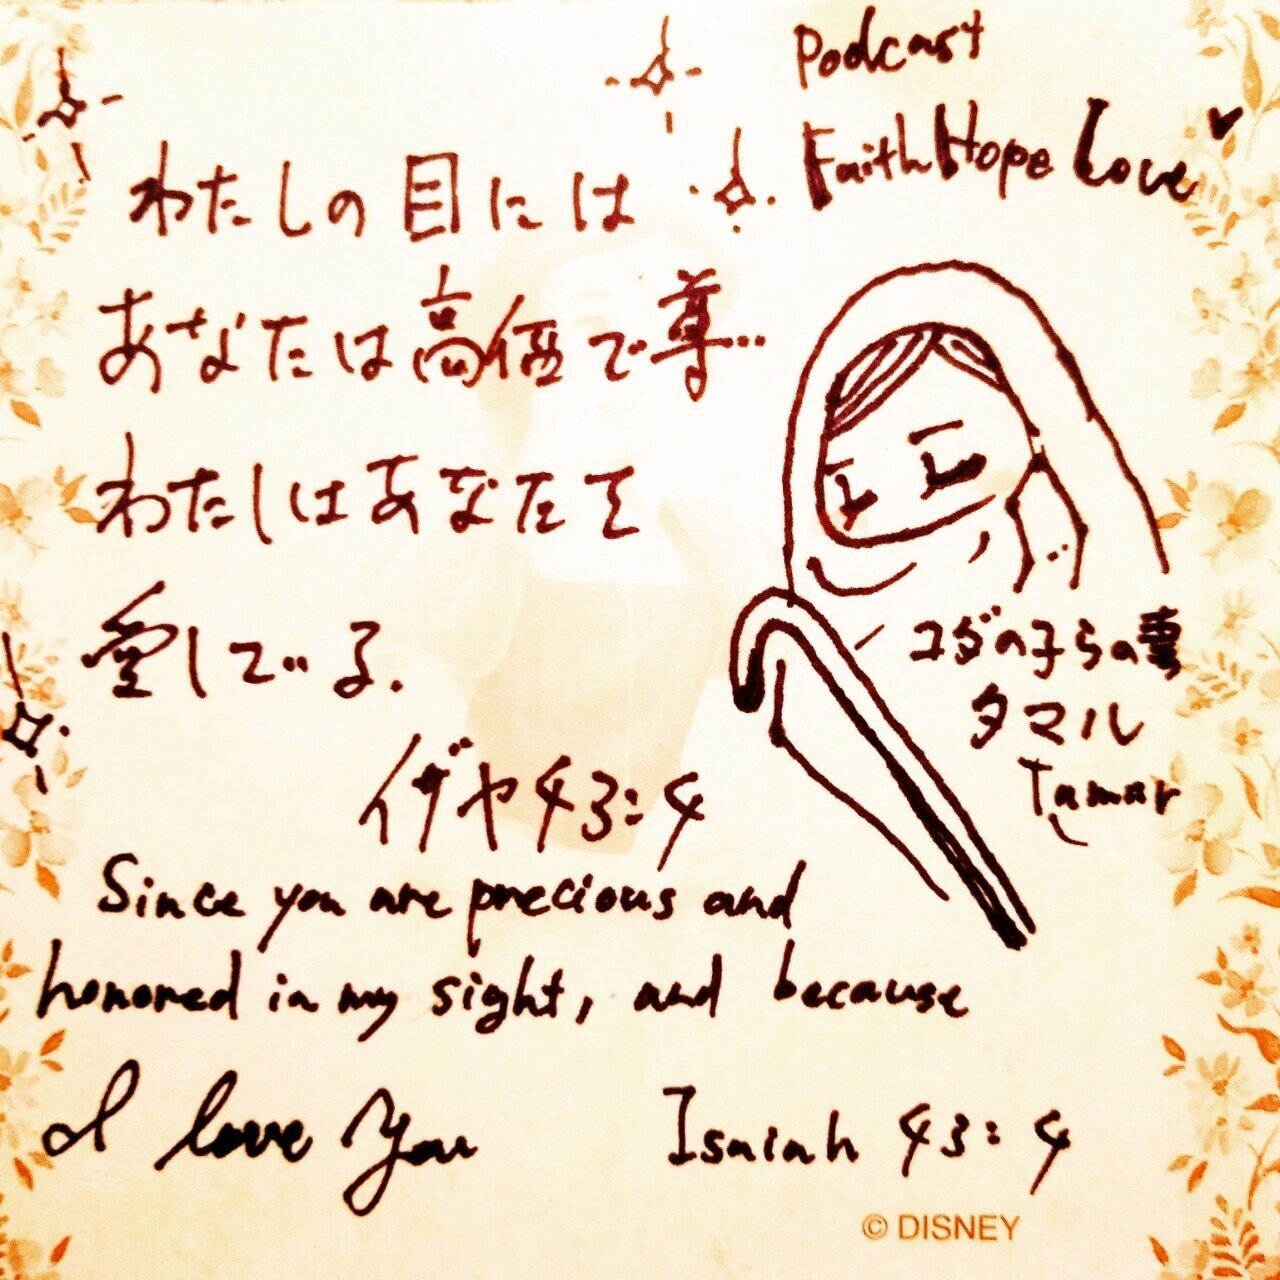 Podcast
Faith Hope Love
わたしの目には
あなたは高価で尊..
わたしはあなたを
愛している.
イザヤ43:4
ユダの子らの妻
タマル
Tamar
Since you are precious and
honored in my sight, and because
I love You
Isaiah 43:4
© DISNEY